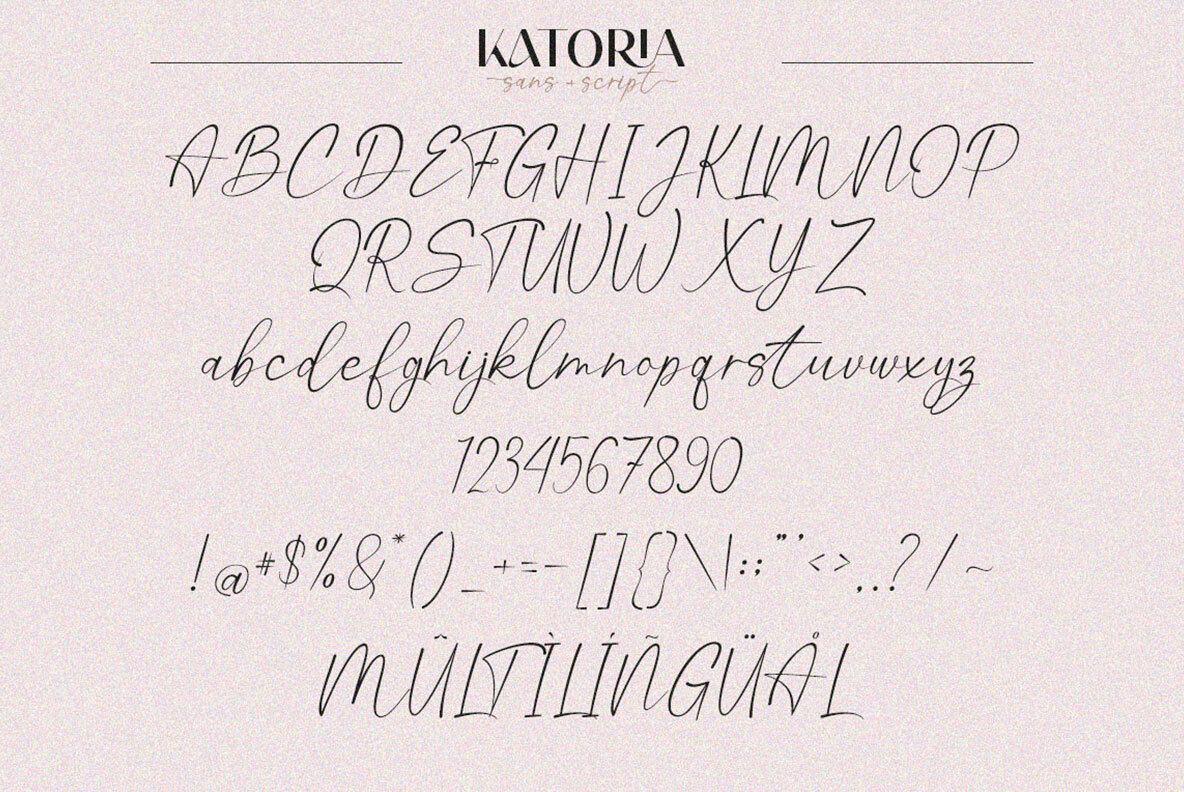 KATORIA
sans + script
ABCDEFGHIJKLMNOP
QRSTUVWXYZ
abcdefghijklmnopqrstuvwxyz
1234567890
!@#$%&*()_+=-[]{}\|:;"'<>,.?/~
MÛLTÌLÍÑGÜÅL